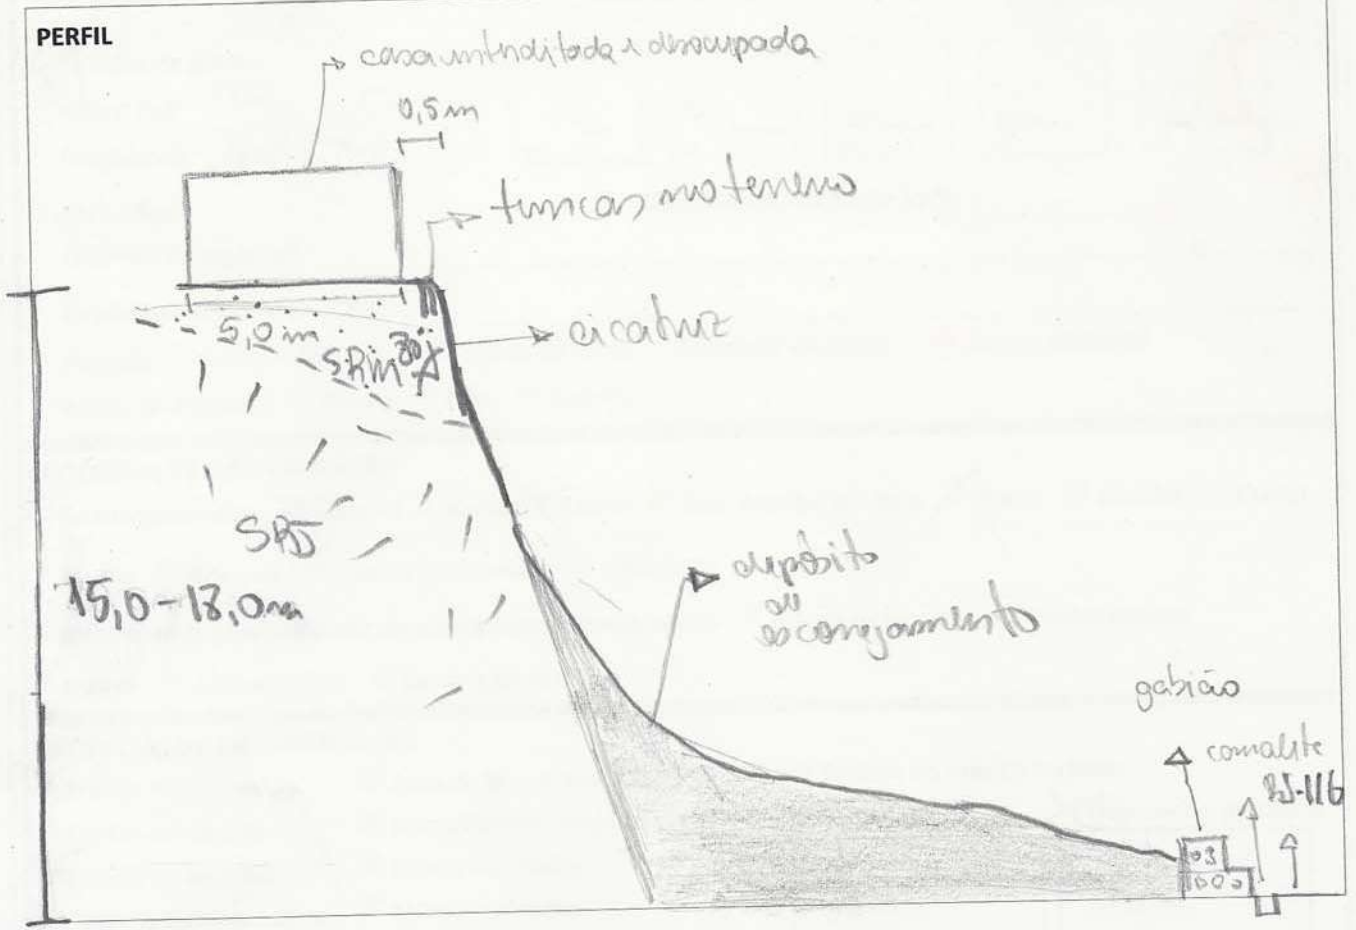 PERFIL
casa interditada e desocupada
0,5m
trincas no terreno
cicatriz
5,0m
SRM
80°
SRJ
15,0-18,0m
depósito
de
escorregamento
gabião
canalete
RJ-116